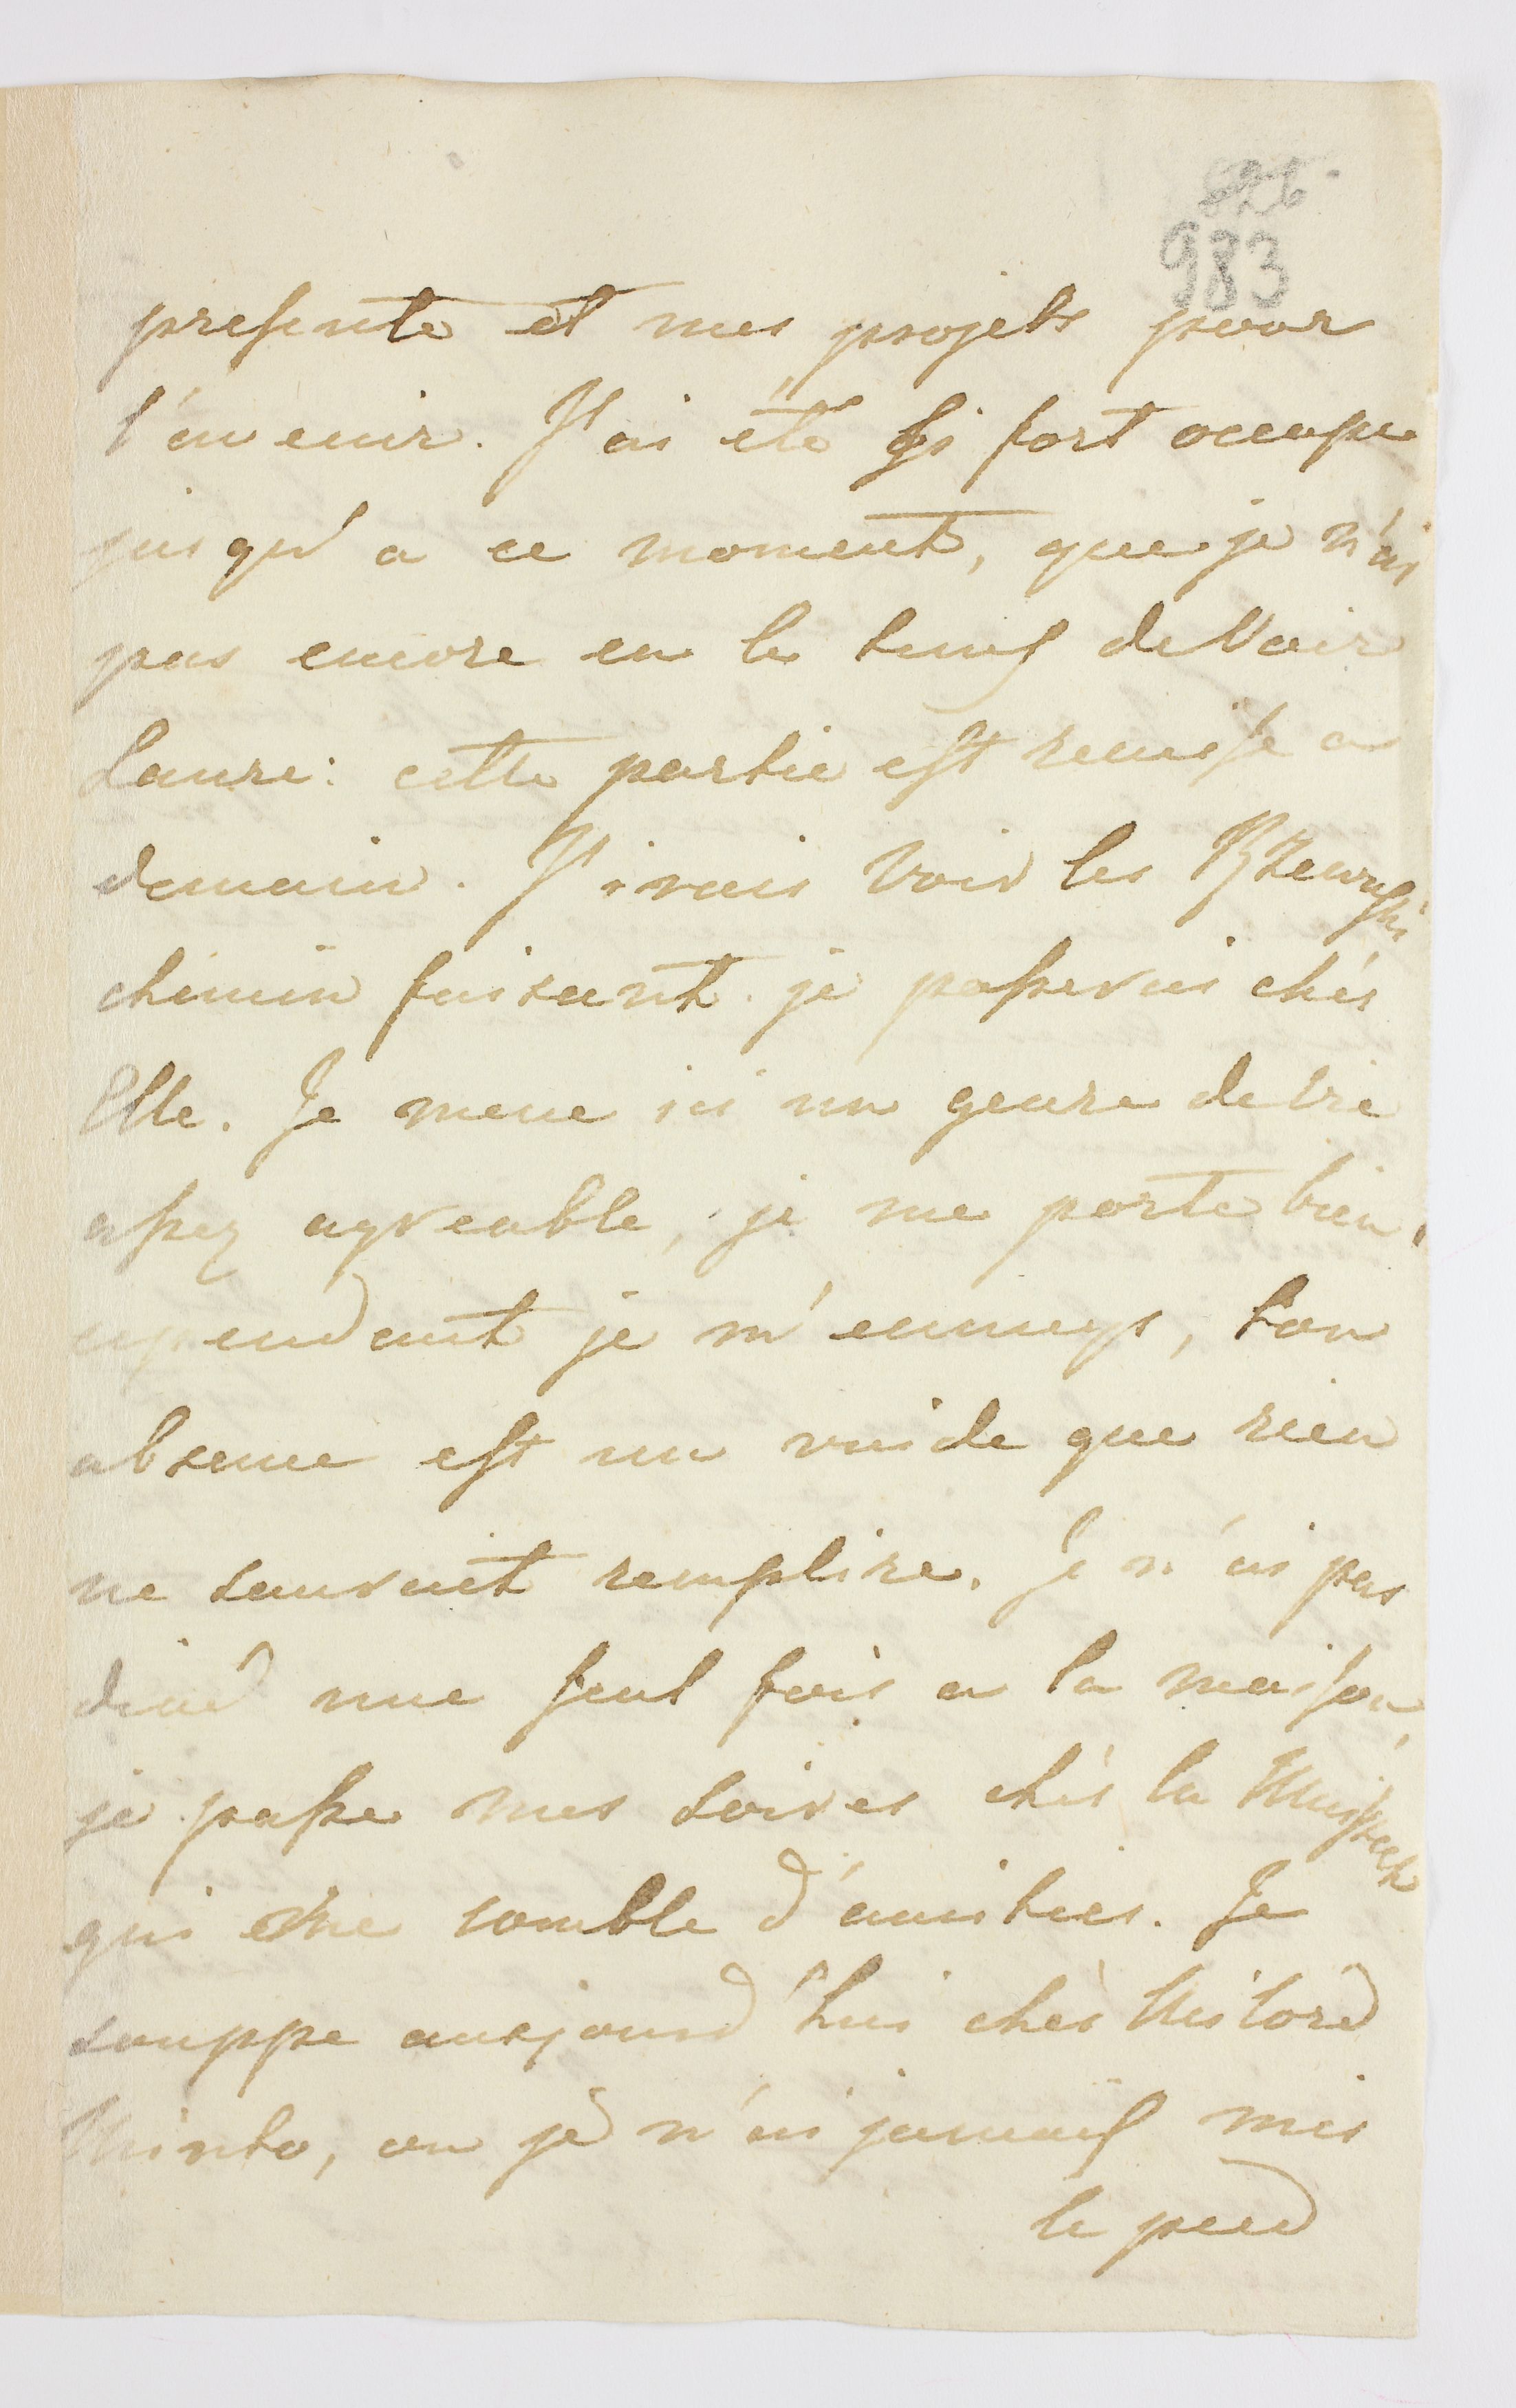 626.
983
presente et mes projets pour
l'avenir. J'ai été si fort occupe
jusqu'a ce moment, que je n'ai
pas encore eu le tems de Voir
Laure: cette partie est remise a
demain. J'irais Voir les Rzewuski
chemin faisant je passerai chés
Elle. Je mene ici un genre de Vie
assez agreable, je me porte bien,
cependant je m'ennuys, ton
absence est un vuide que rien
ne sauroit remplire. Je n'ai pas
diné une seul fois a la maison,
je passe mes soires chés la
qui me comble d'amities. Je
souppe aujourd'hui chés Milord
Minto, ou je n'ai jamais mis
le pied